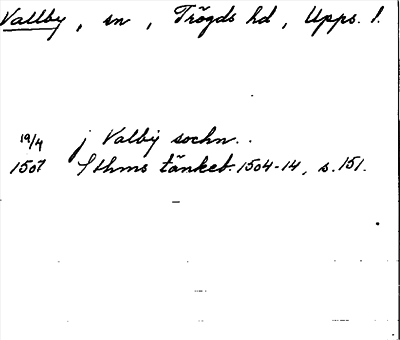 Vallby, sn, Trögds hd, Upps. l.
19/4 j Valby sochn.
1507 Sthms tänkeb. 1504-14, s. 151.